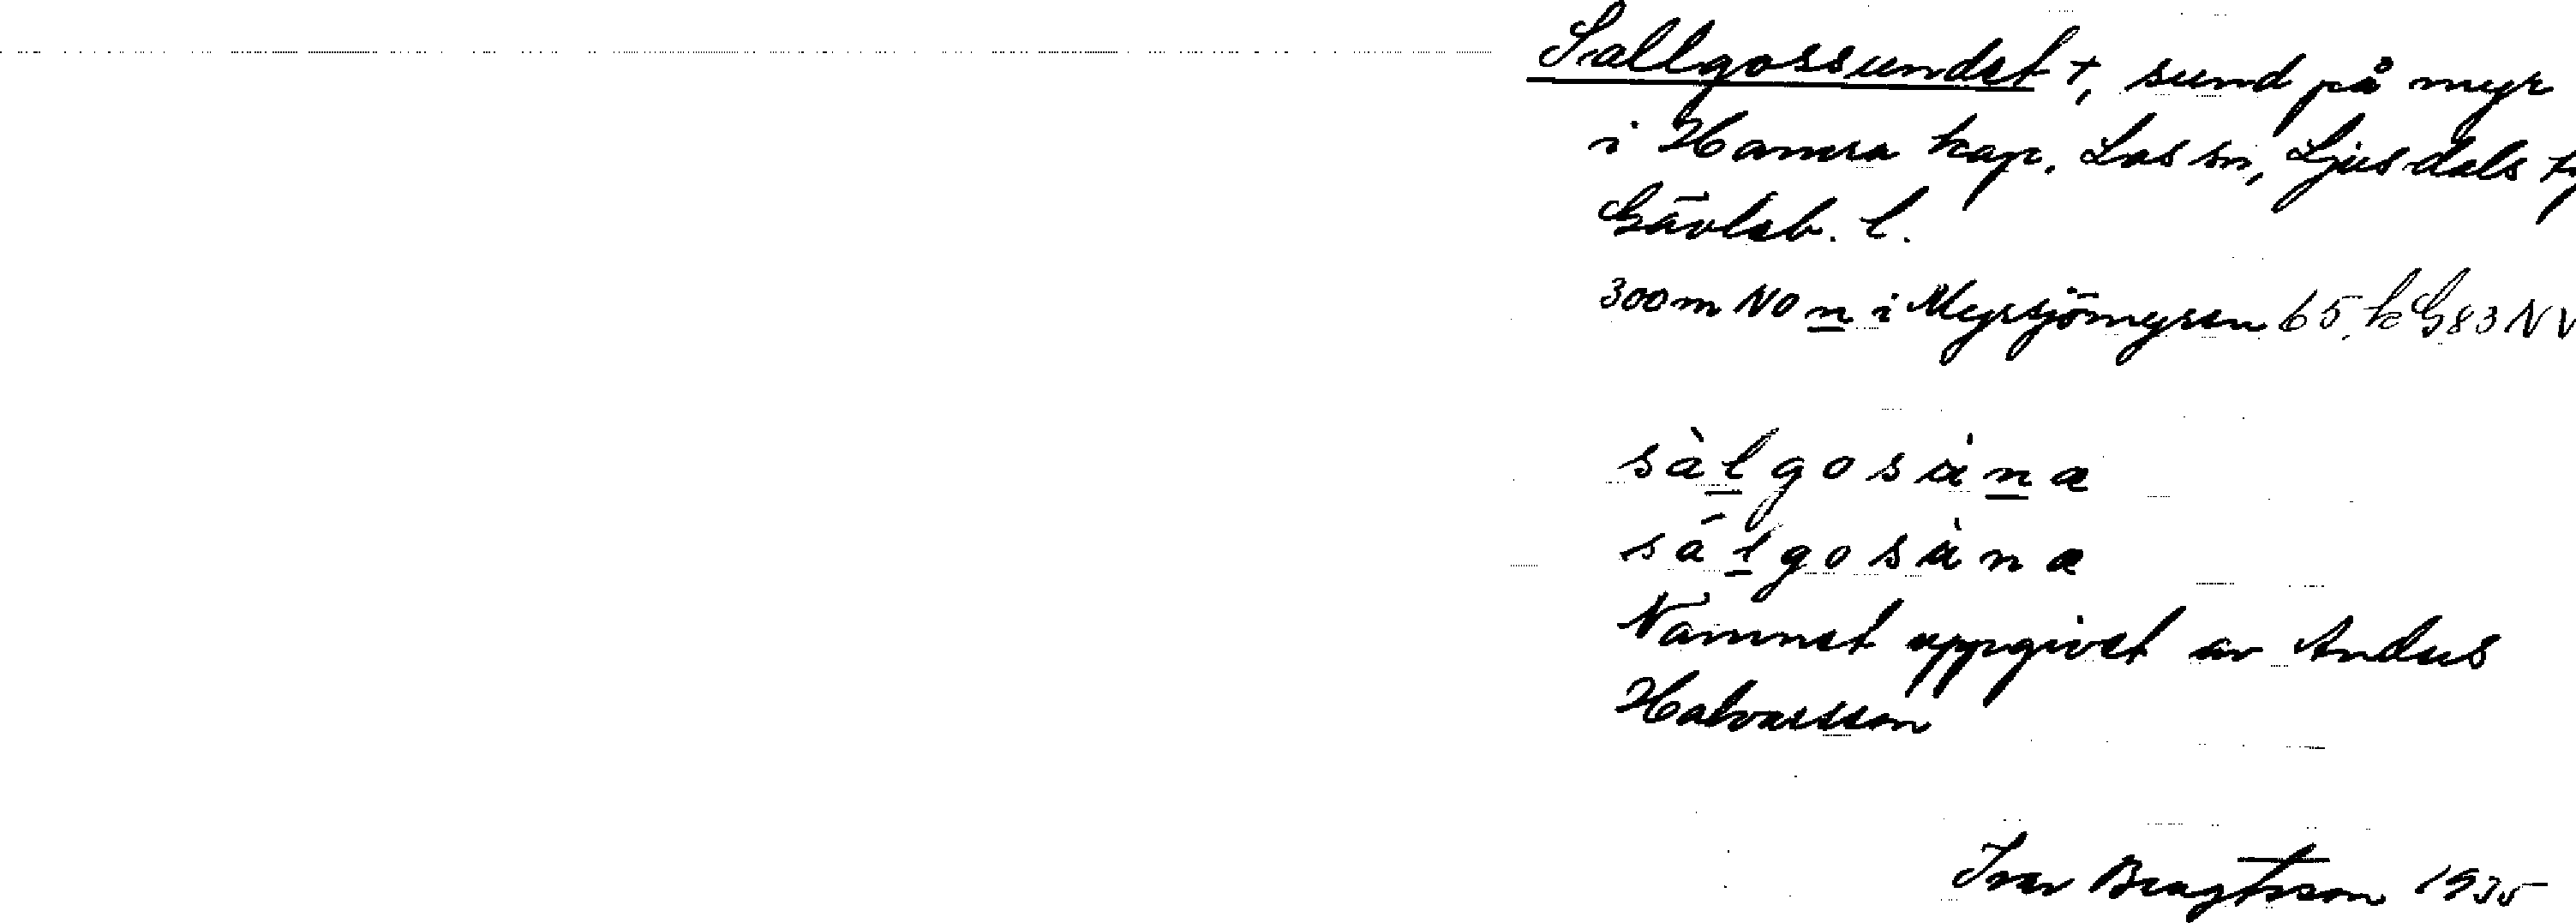 Sallgossundet +, sund på myr
i Hamra kap. Los sn, Ljusdals
Gävleb. l.
300m NO n i Myrsjömyren 65. k G83NV
sàlgosùna
sálgosùna
Namnet uppgivet av Anders
Halvarsson
Ivar Bengtsson 1935